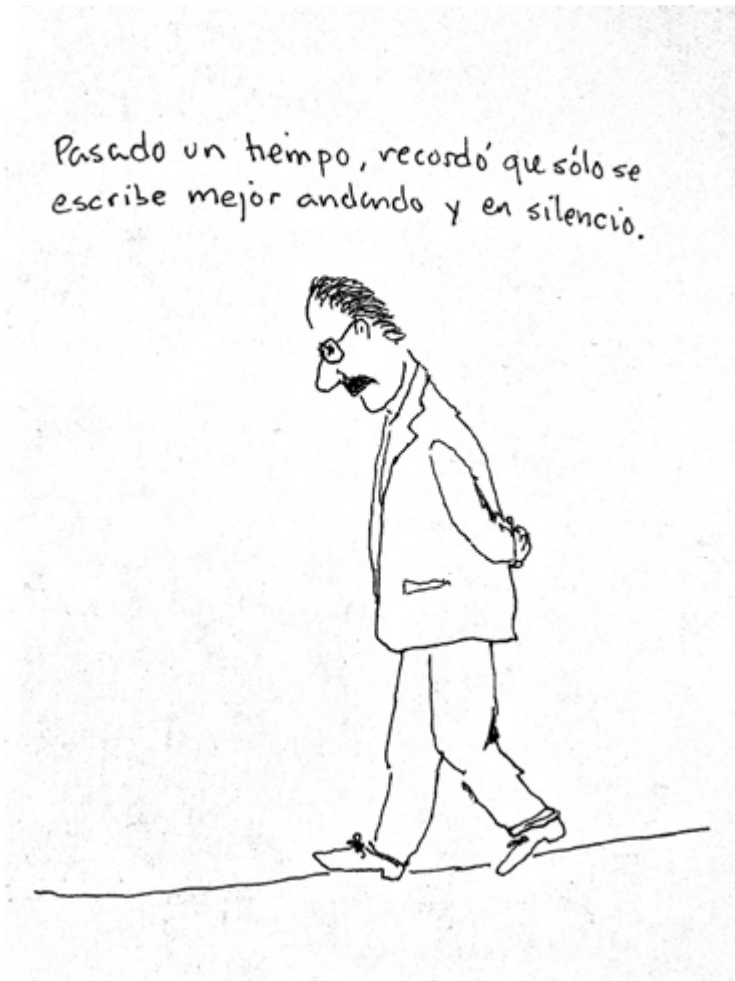 Pasado un tiempo, recordó que sólo se
escribe mejor andando y en silencio.